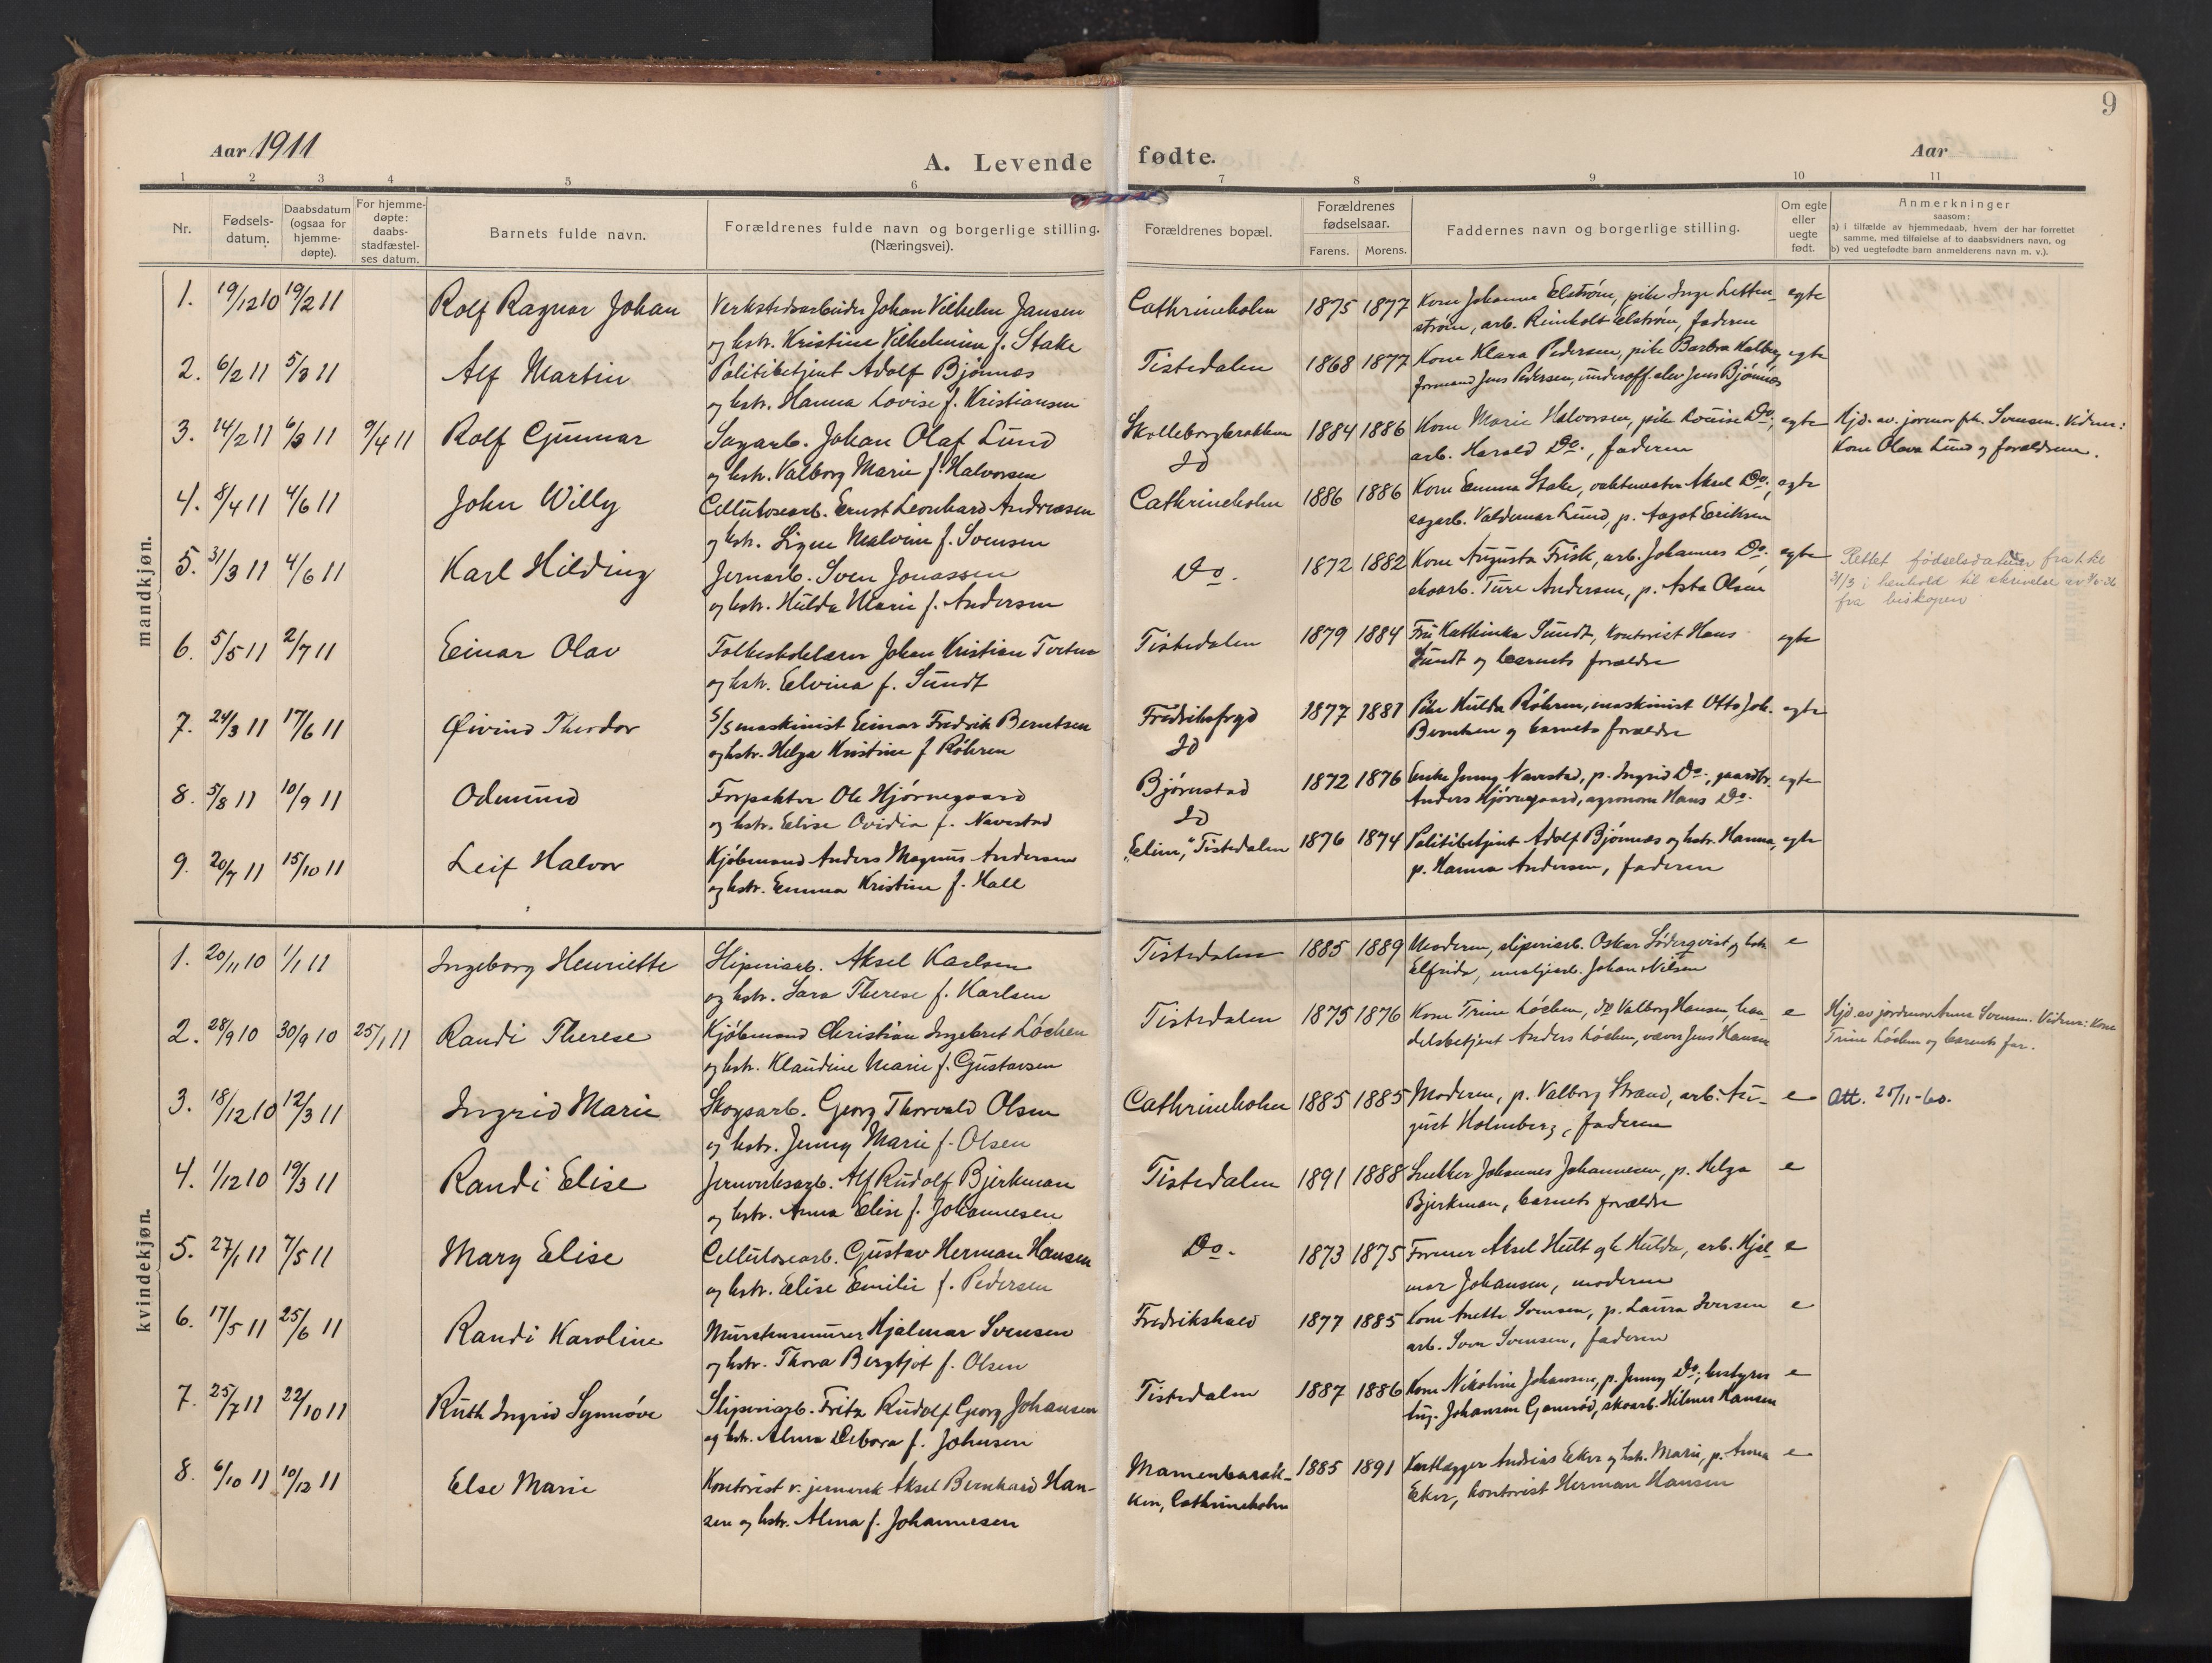 9
Aar 1911
A. Levende fødte.
Aar
1 2 3 4 5 6 7 8 9 10 11
Nr.
Fødsels-
datum.
Daabsdatum
(ogsaa for
hjemme-
døpte).
For hjemme-
døpte:
daabs-
stadfæstel-
ses datum.
Barnets fulde navn.
Forældrenes fulde navn og borgerlige stilling.
(Næringsvei).
Forældrenes bopæl.
Forældrenes
fødselsaar.
Farens. Morens.
Faddernes navn og borgerlige stilling.
Om egte
eller
uegte
født.
Anmerkninger
saasom:
a) i tilfælde av hjemmedaab, hvem der har forrettet
samme, med tilføielse af to daabsvidners navn, og
b) ved uegtefødte barn anmelderens navn m. v.).
mandkjøn.
1. 19/12 10 19/2 11 Rolf Ragnar Johan Verkstedsarbeider Johan Vilhelm Jansen Cathrineholm 1875 1877 Kone Johanne Elstrøm, pike Inga Letten- egte
og hstr. Kristine Vilhelmine f. Stake strøm, arb. Reinholt Elstrøm, faderen
2. 6/2 11 5/3 11 Alf Martin Politibetjent Adolf Bjønnes Tistedalen 1868 1877 Kone Klara Pedersen, pike Barbra Kalberg egte
og hstr. Hanna Lovise f. Kristiansen formand Jens Pedersen, underoff. elev Jens Bjønnes
3. 14/2 11 6/3 11 9/4 11 Rolf Gunnar Sagarb. Johan Olaf Lund Skolleborgbrakken 1884 1886 Kone Marie Halvorsen, pike Louise Do., egte Hjd. av. jormor frk. Svensen. Vidner:
og hstr. Valborg Marie f. Halvorsen Id arb. Harald Do., faderen Kone Olava Lund og forældrene.
4. 8/4 11 4/6 11 John Willy Cellulosearb. Ernst Leonhard Andreasen Cathrineholm 1886 1886 Kone Emma Stake, vaktmester Aksel Do., egte
og hstr. Signe Malvine f. Svensen sagarb. Valdemar Lund, p. Aagot Eriksen
5. 31/3 11 4/6 11 Karl Hilding Jernarb. Sven Jonassen Do. 1872 1882 Kone Augusta Frisk, arb. Johannes Do., egte Rettet fødselsdatum fra
og hstr. Hulda Marie f. Andersen skoarb. Ture Andersen, p. Asta Olsen 31/3 i henhold til skrivelse av
fra biskopen
6. 5/5 11 2/7 11 Einar Olav Folkeskolelærer Johan Kristian Tveten Tistedalen 1879 1884 Fru Kathinka Sundt, kontorist Hans egte
og hstr. Elvina f. Sundt Sundt og barnets forældre
7. 24/3 11 17/6 11 Øivind Theodor S/S maskinist Einar Fredrik Berntsen Fredriksfryd 1877 1881 Pike Hulda Røhren, maskinist Otto Joh. egte
og hstr. Helga Kristine f Røhren Id Berntsen og barnets forældre
8. 5/8 11 10/9 11 Odmund Forpakter Ole Hjørnegaard Bjørnstad 1872 1876 Enke Jenny Navestad, p. Ingrid Do., gaardbr. egte
og hstr. Elise Ovidia f. Navestad Id Anders Hjørnegaard, agronom Hans Do.
9. 20/7 11 15/10 11 Leif Halvor Kjøbmand Anders Magnus Andersen "Elim", Tistedalen 1876 1874 Politibetjent Adolf Bjønnes og hstr. Hanna, egte
og hstr. Emma Kristine f. Hall p. Hanna Andersen, faderen
kvindekjøn.
1. 20/11 10 1/1 11 Ingeborg Henriette Sliperiarb. Aksel Karlsen Tistedalen 1885 1889 Moderen, sliperiarb. Oskar Søderqvist og hstr e
og hstr. Sara Therese f. Karlsen Elfrida, Johan Nilsen
2. 28/9 10 30/9 10 25/1 11 Randi Therese Kjøbmand Christian Ingebret Løchen Tistedalen 1875 1876 Kone Trine Løchen, do Valborg Hansen, han- e Hjd. av jordmor Anna Svensen. Vidner: Kone
og hstr. Klaudine Marie f. Gustavsen delsbetjent Anders Løchen, væver Jens Hansen Trine Løchen og barnets far.
3. 18/12 10 12/3 11 Ingrid Marie Skogsarb. Georg Thorvald Olsen Cathrineholm 1885 1885 Moderen, p. Valborg Strand, arb. Au- e Att. 25/11-60.
og hstr. Jenny Marie f. Olsen gust Holmberg, faderen
4. 1/12 10 19/3 11 Randi Elise Jernverksarb. Alf Rudolf Bjerkman Tistedalen 1891 1888 Snekker Johannes Johannesen, p. Helga e
og hstr. Anna Elise f. Johannesen Bjerkman, barnets forældre
5. 27/1 11 7/5 11 Mary Elise Cellulosearb. Gustav Herman Hansen Do. 1873 1875 Former Aksel Hult og k Hulda, arb. Hjal- e
og hstr. Elise Emilie f. Pedersen mar Johansen, moderen
6. 17/5 11 25/6 11 Randi Karoline Murstensmurer Hjalmar Svensen Fredrikshald 1877 1885 Kone Anette Svensen, p. Laura Iversen e
og hstr. Thora Bergljot f. Olsen arb. Sven Svensen, faderen
7. 25/7 11 22/10 11 Ruth Ingrid Synnøve Sliperiarb. Fritz Rudolf Georg Johansen Tistedalen 1887 1886 Kone Nikoline Johansen, p. Jenny Do., bestyrer e
og hstr. Alma Debora f. Johnsen Johansen Gamrød, skoarb. Hilmer Hansen
8. 6/10 11 10/12 11 Else Marie Kontorist v. jernverk Aksel Bernhard Han- Mamenbarak- 1885 1891 Kartlægger Andreas Eeker og hstr. Marie, p. Anna e
sen og hstr. Alma f. Johannesen ken, Cathrineholm Eeker, kontorist Herman Hansen